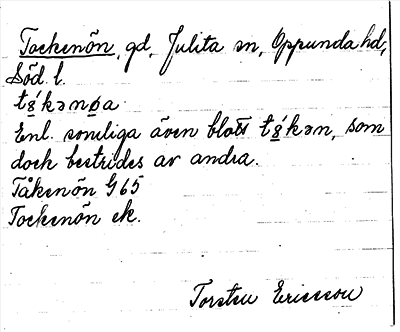 Tockenön, gd, Julita sn, Oppunda hd,
Söd. l.
tǫ́kənøa
Enl. somliga även blott tǫ́kən, som
dock bestrides av andra.
Tåkenön G65
Tockenön ek.
Torsten Ericsson